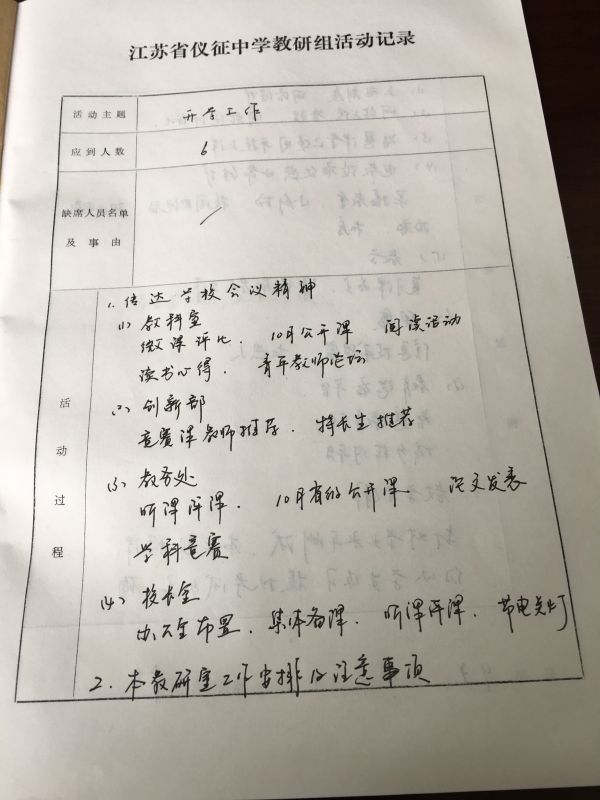 江苏省仪征中学教研组活动记录
活动主题 开学工作
应到人数 6
缺席人员名单
及事由 /
活动过程
1. 传达学校会议精神
(1) 教科室
微课评比、 10月公开课 阅读活动
读书心得、 青年教师论坛
(2) 创新部
竞赛课教师推荐、 特长生推荐
(3) 教务处
听课评课、 10月省的公开课、 论文发表
学科竞赛
(4) 校长室
办公室布置、集体备课、 听课评课、 节电关灯
2. 本教研室工作安排及注意事项